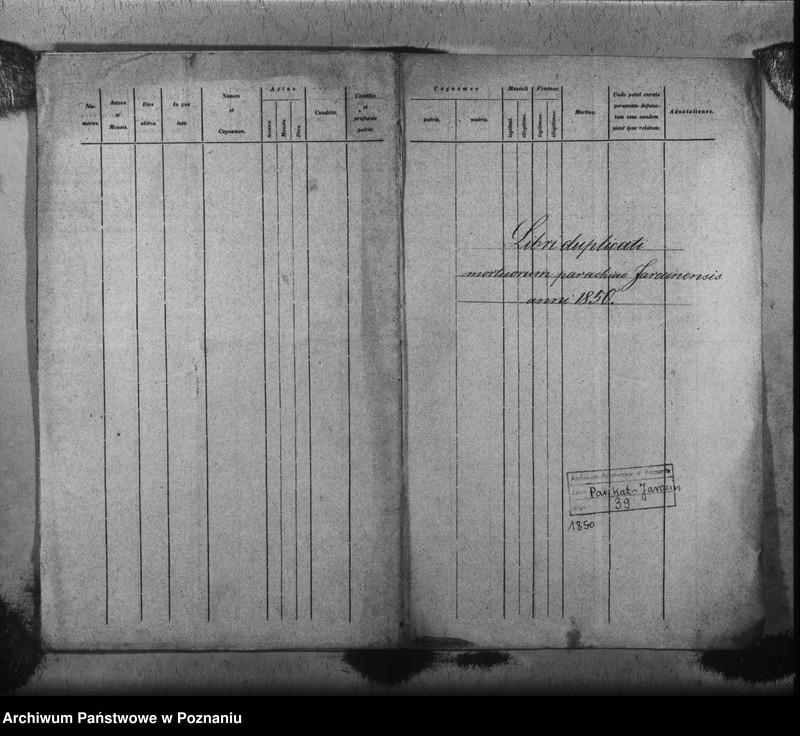 Nu-
merus.
Annus
et
Mensis.
Dies
obitus.
In quo
loco.
Nomen
et
Cognomen.
Aetas.
Annus.
Mensis.
Dies.
Conditio.
Conditio
et
professio
patris.
Cognomen
patris.
matris.
Masculi
legitimi.
illegitimi.
Feminae
legitimae.
illegitimae.
Morbus.
Unde patet curato
personam defunc-
tam esse eandem
sicut ipse relatum.
Adnotationes.
Libri duplicati
mortuorum parochiae Jarocinensis
anni 1850.
Archiwum Państwowe w Poznaniu
Par. Kat. Jarocin
39
1850
Archiwum Państwowe w Poznaniu